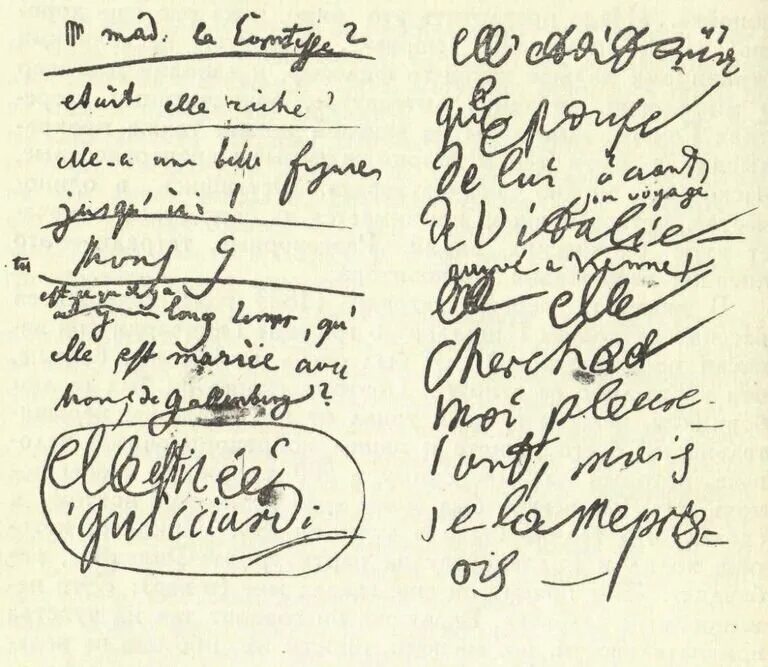 mad. la Comtesse?
etait elle riche?
elle a une belle figure
jusqu'ici!
Mons G
est-ce qu'il y a
long temps, qu'
elle est mariée avec
Mons. de Gallenberg?
elle est née
guicciardi
elle etoit
qu' Epouse
de lui avant
son voyage
de l'Italie
arrivé a Vienne
elle
cherchoit
moi pleure-
ant, mais
je la mepris=
ois